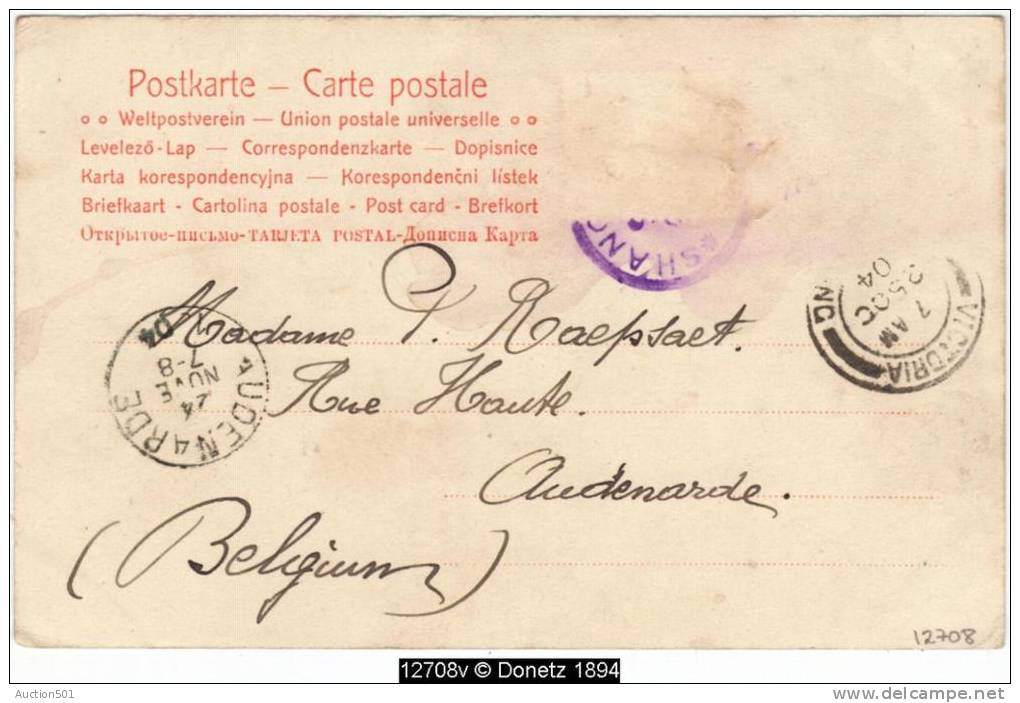 Postkarte — Carte postale
Weltpostverein — Union postale universelle
Levelező-Lap — Correspondenzkarte — Dopisnice
Karta korespondencyjna — Korespondenčni lístek
Briefkaart - Cartolina postale - Post card - Brefkort
Открытое-письмо-TARJETA POSTAL-Дописна Карта
SHANG
VICTORIA
NG
7 AM
OC
04
Madame P. Raepsaet.
Rue Haute.
Audenarde.
(Belgium)
AUDENARDE
NOVE
7-8
04
12708
12708v © Donetz 1894
Auction501
www.delcampe.net